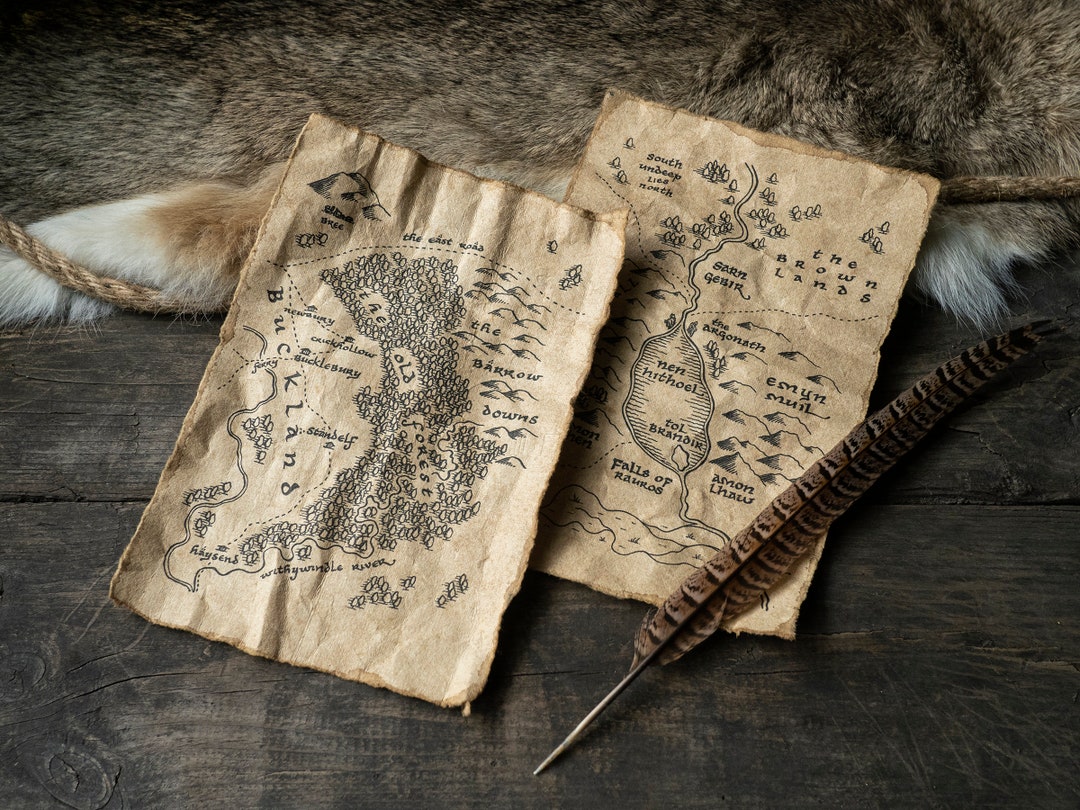 BREE
the East Road
Buckland
newbury
crickhollow
Bucklebury
ferry
Standelf
haysend
withywindle River
the
Old
Forest
the
Barrow
Downs
South
undeep
lies
north
Sarn
Gebir
the
Brown
Lands
the
Argonath
nen
hithoel
Emyn
Muil
tol
Brandir
Falls of
Rauros
Amon
Lhaw